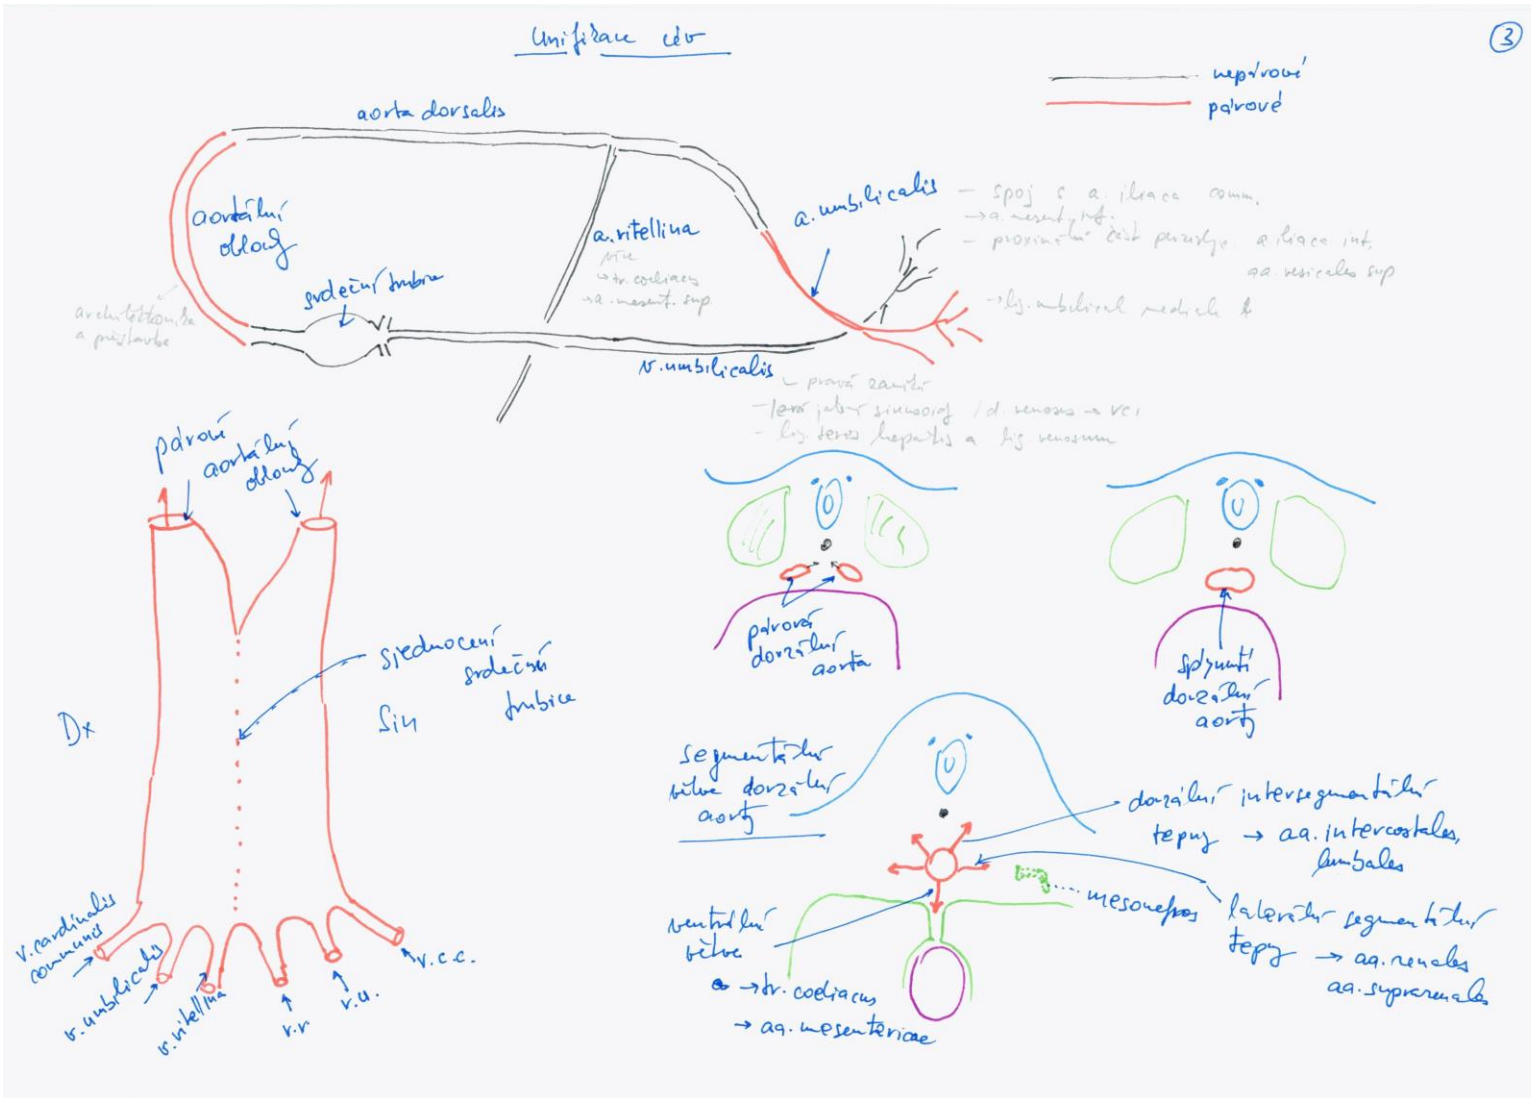 Unifikace cév
3
nepárové
párové
aorta dorsalis
aortální
oblouky
srdeční trubice
architektonika
a přestavba
a. vitellina
více
→ tr. coeliacus
→ a. mesent. sup.
a. umbilicalis
– spoj s a. iliaca comm.
→ a. mesent. inf.
– proximální část a. iliaca int.
aa. vesicales sup
→ lig. umbilicale mediale
v. umbilicalis
– pravá zaniká
– levá sinusoidy / d. venosus → VCI
– lig. teres hepatis a lig. venosum
párové
aortální
oblouky
sjednocení
srdeční
trubice
Dx
Sin
v. cardinalis
communis
v. umbilicalis
v. vitellina
v.v.
v.u.
v.c.c.
párová
dorzální
aorta
splynutí
dorzální
aorty
segmentální
větve dorzální
aorty
dorzální intersegmentální
tepny → aa. intercostales,
lumbales
mesonefros
laterální segmentální
tepny → aa. renales
aa. suprarenales
ventrální
větve
→ tr. coeliacus
→ aa. mesentericae